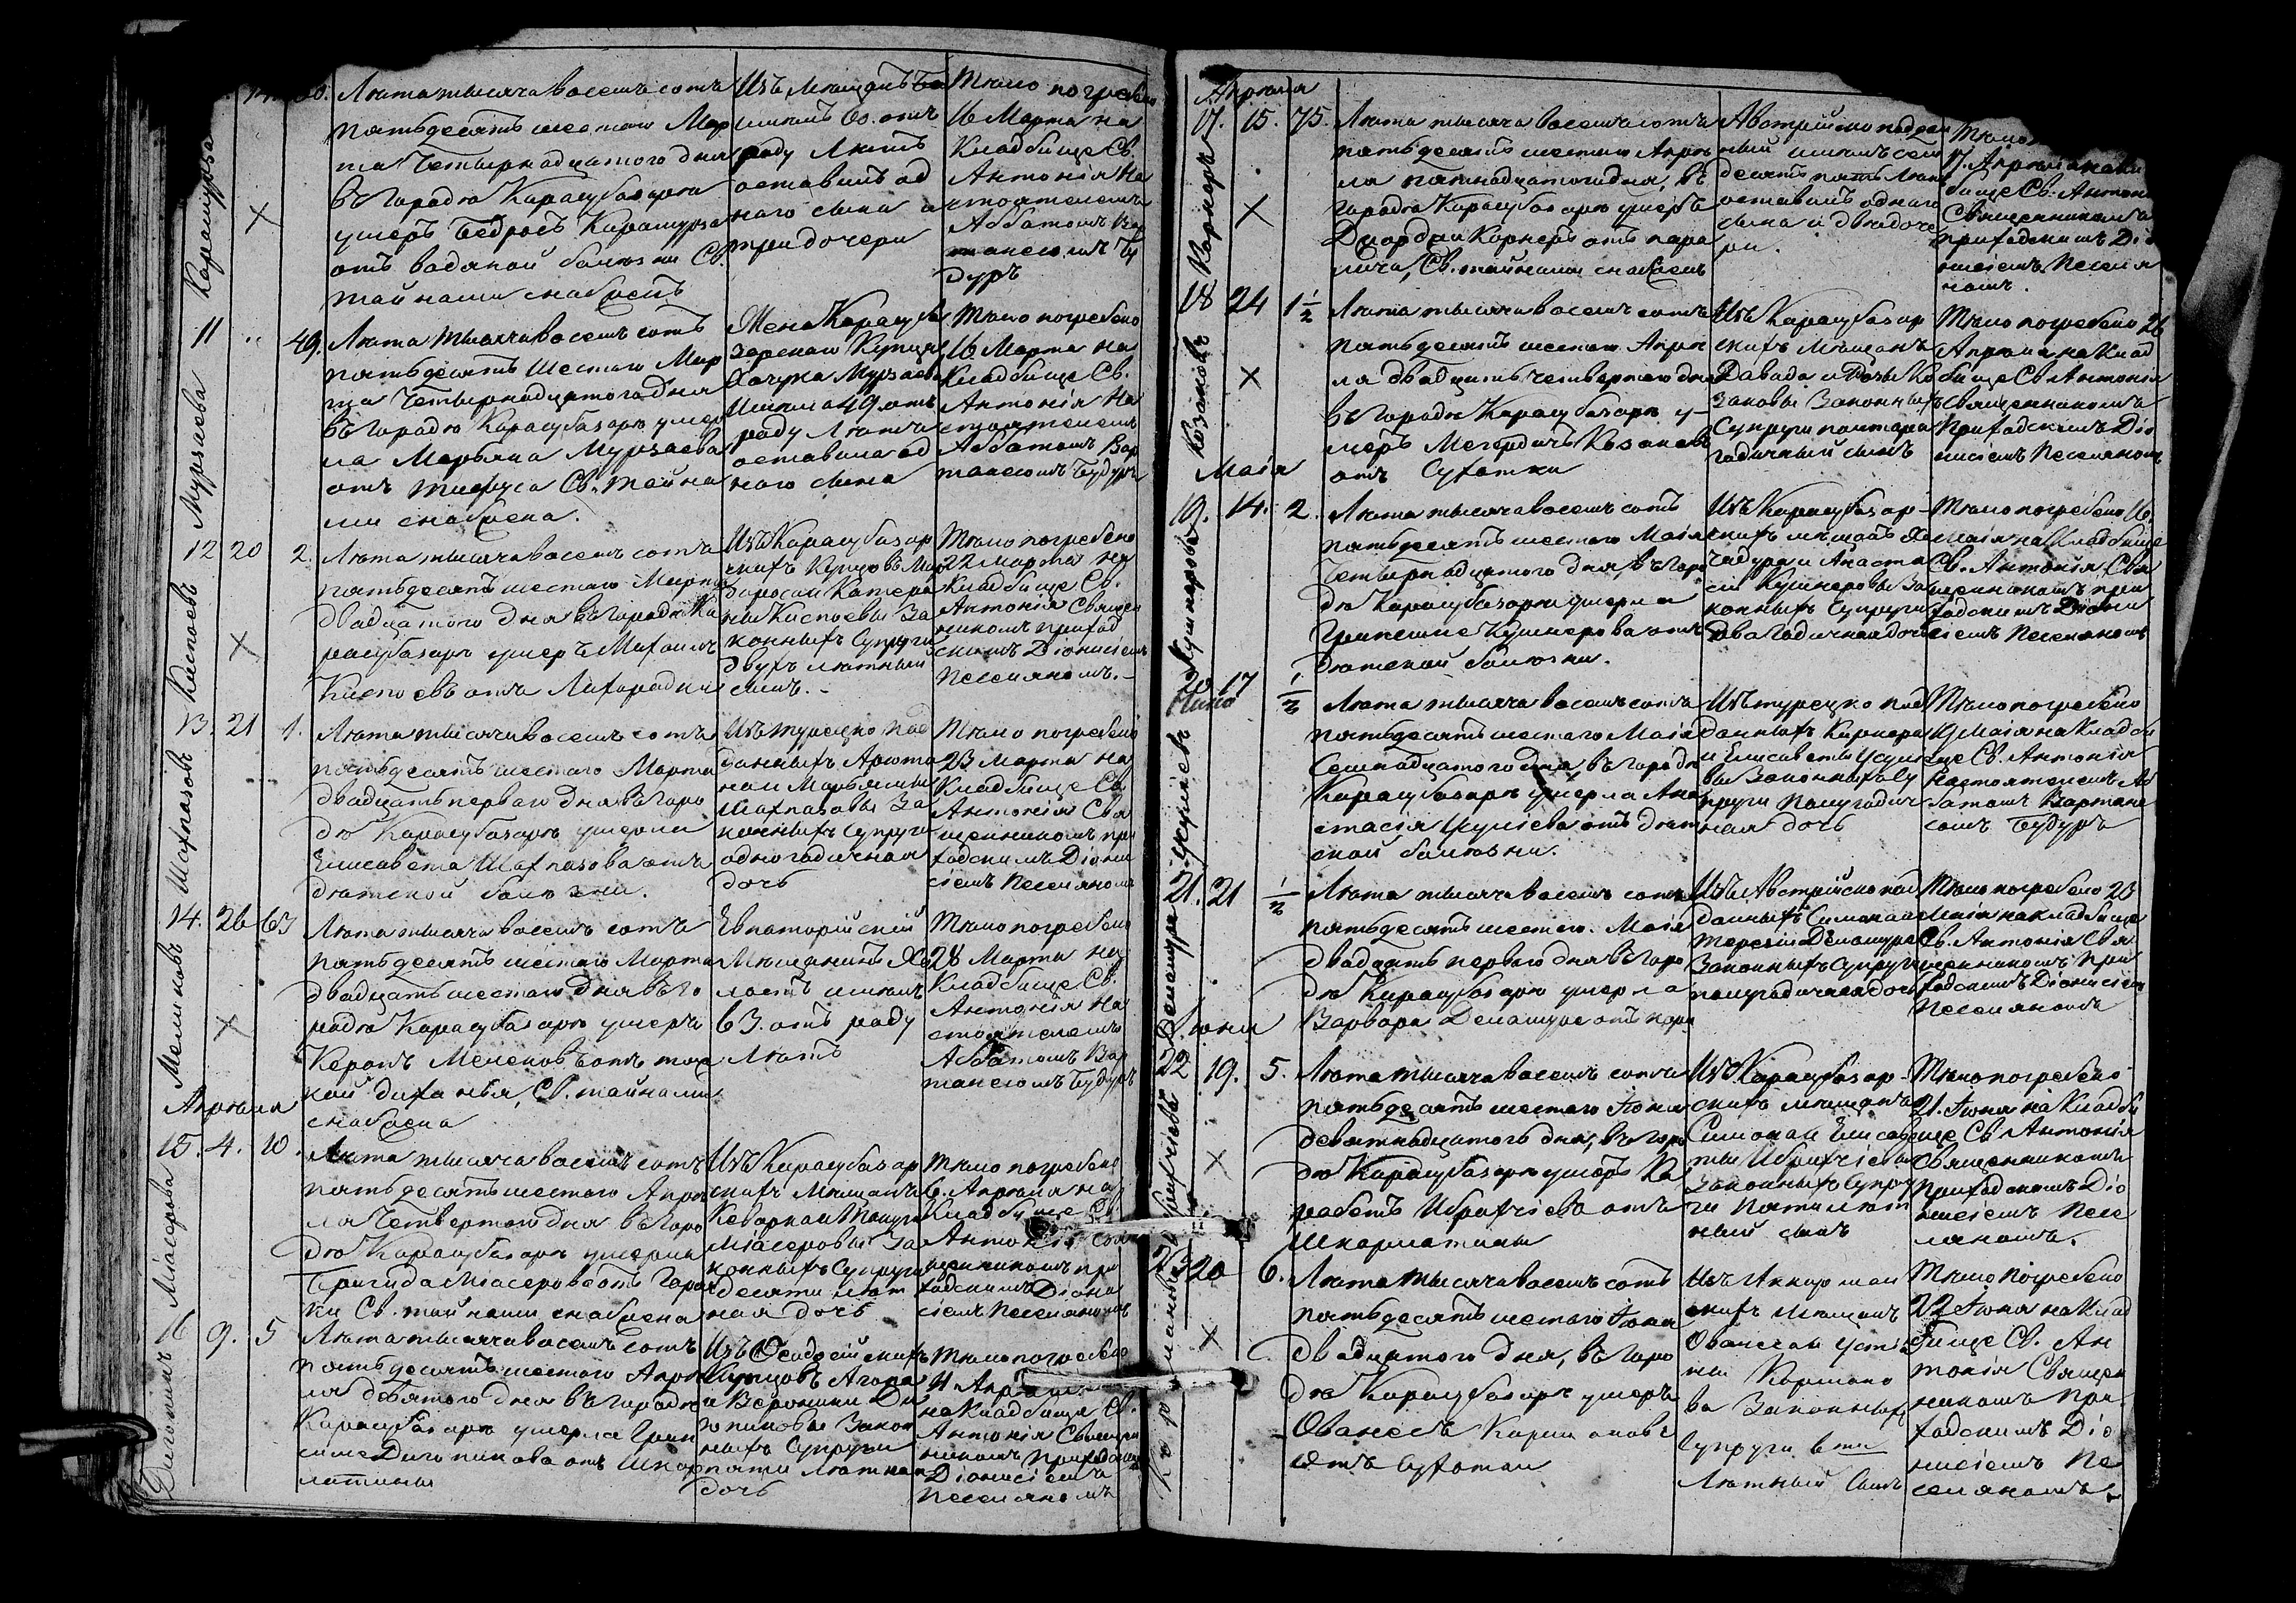 Карамурза
60.
Лѣта тысяча восемь сотъ
пятьдесятъ шестаго Мар
та Четырнадцатого дня
въ Городѣ Карасубазарѣ
умеръ Бедросъ Карамурза
отъ водяной болѣзни Св.
тайнами снабженъ
Изъ Мѣщанъ
имѣлъ 60. отъ
роду Лѣтъ
оставилъ од
ного сына и
три дочери
Тѣло погребено
16 Марта на
Кладбище Св.
Антонія На
стоятелемъ
Аббатомъ Вар
танесомъ Бу
дуръ
Мурзаева
11 .. 49.
Лѣта тысяча восемь сотъ
пятьдесятъ шестаго Мар
та Четырнадцатого дня
въ Городѣ Карасубазарѣ умер
ла Марьяна Мурзаева
отъ тифуса Св. тайна
ми снабжена.
Жена Карасуба
зарскаго Купца
Хачука Мурзаева
Имѣла 49 отъ
роду Лѣтъ
оставила од
ного сына
Тѣло погребено
16 Марта на
Кладбище Св.
Антонія На
стоятелемъ
Аббатомъ Вар
танесомъ Будуръ
Киспоевъ
12 20 2.
Лѣта тысяча восемь сотъ
пятьдесятъ шестаго Марта
двадцатого дня въ Городѣ Ка
расубазарѣ умеръ Михаилъ
Киспоевъ отъ Лихорадки
Изъ Карасубазар
скихъ Купцовъ
Катери
ны Киспоевы За
конныхъ Супруги
двухъ лѣтный
сынъ.
Тѣло погребено
22 Марта на
Кладбище Св.
Антонія Священ
никомъ приход
скимъ Діонисіемъ
Песеляномъ.
Шахназовъ
13. 21 1.
Лѣта тысяча восемь сотъ
пятьдесятъ шестаго Марта
двадцать перваго дня въ Горо
дѣ Карасубазарѣ умерла
Елисавета Шахназова отъ
дѣтской болѣзни.
Изъ турецко под
данныхъ
Шахназовы За
конныхъ Супруги
одногодичная
дочь
Тѣло погребено
23 Марта на
Кладбище Св.
Антонія Свя
щенникомъ при
ходскимъ Діони
сіемъ Песеляномъ
Мелековъ
14. 26 63
Лѣта тысяча восемь сотъ
пятьдесятъ шестаго Марта
двадцать шестаго дня въ Го
родѣ Карасубазарѣ умеръ
Керопъ Мелековъ отъ тяж
кой диханья, Св. тайнами
снабжена
Евпаторійскій
Мѣщанинъ Хо
лостъ имѣлъ
63. отъ роду
Лѣтъ
Тѣло погребено
28 Марта на
Кладбище Св.
Антонія На
стоятелемъ
Аббатомъ Вар
танесомъ Будуръ
Апрѣля
Міасерова
15. 4. 10.
Лѣта тысяча восемь сотъ
пятьдесятъ шестаго Апрѣ
ля Четвертого дня въ Горо
дѣ Карасубазарѣ умерла
Бригида Міасеров отъ Горяч
ки Св. тайнами снабжена
Изъ Карасубазар
скихъ Мѣщанъ
Міасеровы За
конныхъ Супруги
десяти лѣт
ная дочь
Тѣло погребено
6. Апрѣля на
Кладбище Св.
Антонія Свя
щенникомъ при
ходскимъ Діони
сіемъ Песеляномъ
16 9. 5
Лѣта тысяча восемь сотъ
пятьдесятъ шестаго Апрѣ
ля девятого дня въ Городѣ
Карасубазарѣ умерла Грип
симе отъ Шкар
латины
Изъ Ѳеодосійскихъ
Купцовъ Агопа
и Вероники
Закон
ныхъ Супруги
пяти лѣтная
дочь
Тѣло погребено
11 Апрѣля
на Кладбище Св.
Антонія Священ
никомъ Приходскимъ
Діонисіемъ
Песеляномъ
Апрѣля
Карнеръ
17. 15. 75.
Лѣта тысяча восемь сотъ
пятьдесятъ шестаго Апрѣ
ля пятнадцатого дня, въ
Городѣ Карасубазарѣ умеръ
Карнеръ отъ пара
лича, Св. тайнами снабженъ
Австрійско поддан
ный имѣлъ сем
десятъ пять Лѣтъ
оставилъ одного
сына и две доче
ри.
Тѣло
17. Апрѣля на клад
бище Св. Антонія
Священникомъ
приходскимъ Діо
нисіемъ Песеля
номъ.
Козаковъ
18 24 1½
Лѣта тысяча восемь сотъ
пятьдесятъ шестаго Апрѣ
ля двадцать четвертаго дня
въ Городѣ Карасубазарѣ у-
меръ Мегердичъ Козаковъ
отъ Сухотки
Изъ Карасубазар
скихъ Мѣщанъ
Давида и Розы Ко
заковы Законныхъ
Супруги полтора
годичный сынъ
Тѣло погребено 26
Апрѣля на Клад
бище Св. Антонія
Священникомъ
Приходскимъ Діо
нисіемъ Песеляномъ
Маія
Кушнерова
19. 14. 2.
Лѣта тысяча восемь сотъ
пятьдесятъ шестого Маія
Четырнадцатого дня, въ Горо
дѣ Карасубазарѣ умерла
Грипсиме Кушнерова отъ
дѣтской болѣзни.
Изъ Карасубазар-
скихъ мѣщанъ Ха
чадура и Анаста
сіи Кушнеровы За
конныхъ Супруги
два годичная дочь
Тѣло погребено 16.
Маія на Кладбище
Св. Антонія Свя
щенникомъ при
ходскимъ Діони
сіемъ Песеляномъ
17 ½
Лѣта тысяча восемь сотъ
пятьдесятъ шестаго Маія
Семнадцатого дня, въ Городѣ
Карасубазарѣ умерла Ана
стасія отъ дѣт
ской болѣзни.
Изъ турецко под
данныхъ
и Елисаветы
вы Законныхъ Су
пруги полугодич
ная дочь
Тѣло погребено
19 Маія на Кладби
ще Св. Антонія
Настоятелемъ Аб
батомъ Вартане
сомъ Будуръ
21. 21 ½
Лѣта тысяча восемь сотъ
пятьдесятъ шестаго. Маія
двадцать перваго дня въ Горо
дѣ Карасубазарѣ умерла
Варвара Деламуре отъ кори
Изъ Австрійско под
данныхъ Симона и
Терезіи Деламуре
Законныхъ Супруги
полугодичная дочь
Тѣло погребено 23
Маія на кладбище
Св. Антонія Свя
щенникомъ При
ходскимъ Діонисіемъ
Песеляномъ
Іюня
22 19. 5.
Лѣта тысяча восемь сотъ
пятьдесятъ шестаго Іюня
девятнадцатого дня, въ Горо
дѣ Карасубазарѣ умеръ Ка
рабетъ Ибрихчіева отъ
Шкарлатины
Изъ Карасубазар-
скихъ мѣщанъ
Симона и Елисаве
ты Ибрихчіевы
Законныхъ Супру
ги Пяти лѣт
ный сынъ
Тѣло погребено
21. Іюня на Кладби
ще Св. Антонія
Священникомъ
Приходскимъ Діо
нисіемъ Песе
ляномъ.
20 6.
Лѣта тысяча восемь сотъ
пятьдесятъ шестаго Іюня
двадцатого дня, въ Горо
дѣ Карасубазарѣ умеръ
Ованесъ
отъ Сухотки
Мѣщанъ
Ованеса и
ва Законныхъ
Супруги 6 ти
Лѣтный Сынъ
Тѣло Погребено
22 Іюня на Клад
бище Св. Ан
тонія Священ
никомъ При-
ходскимъ Діо
нисіемъ Пе
селяномъ